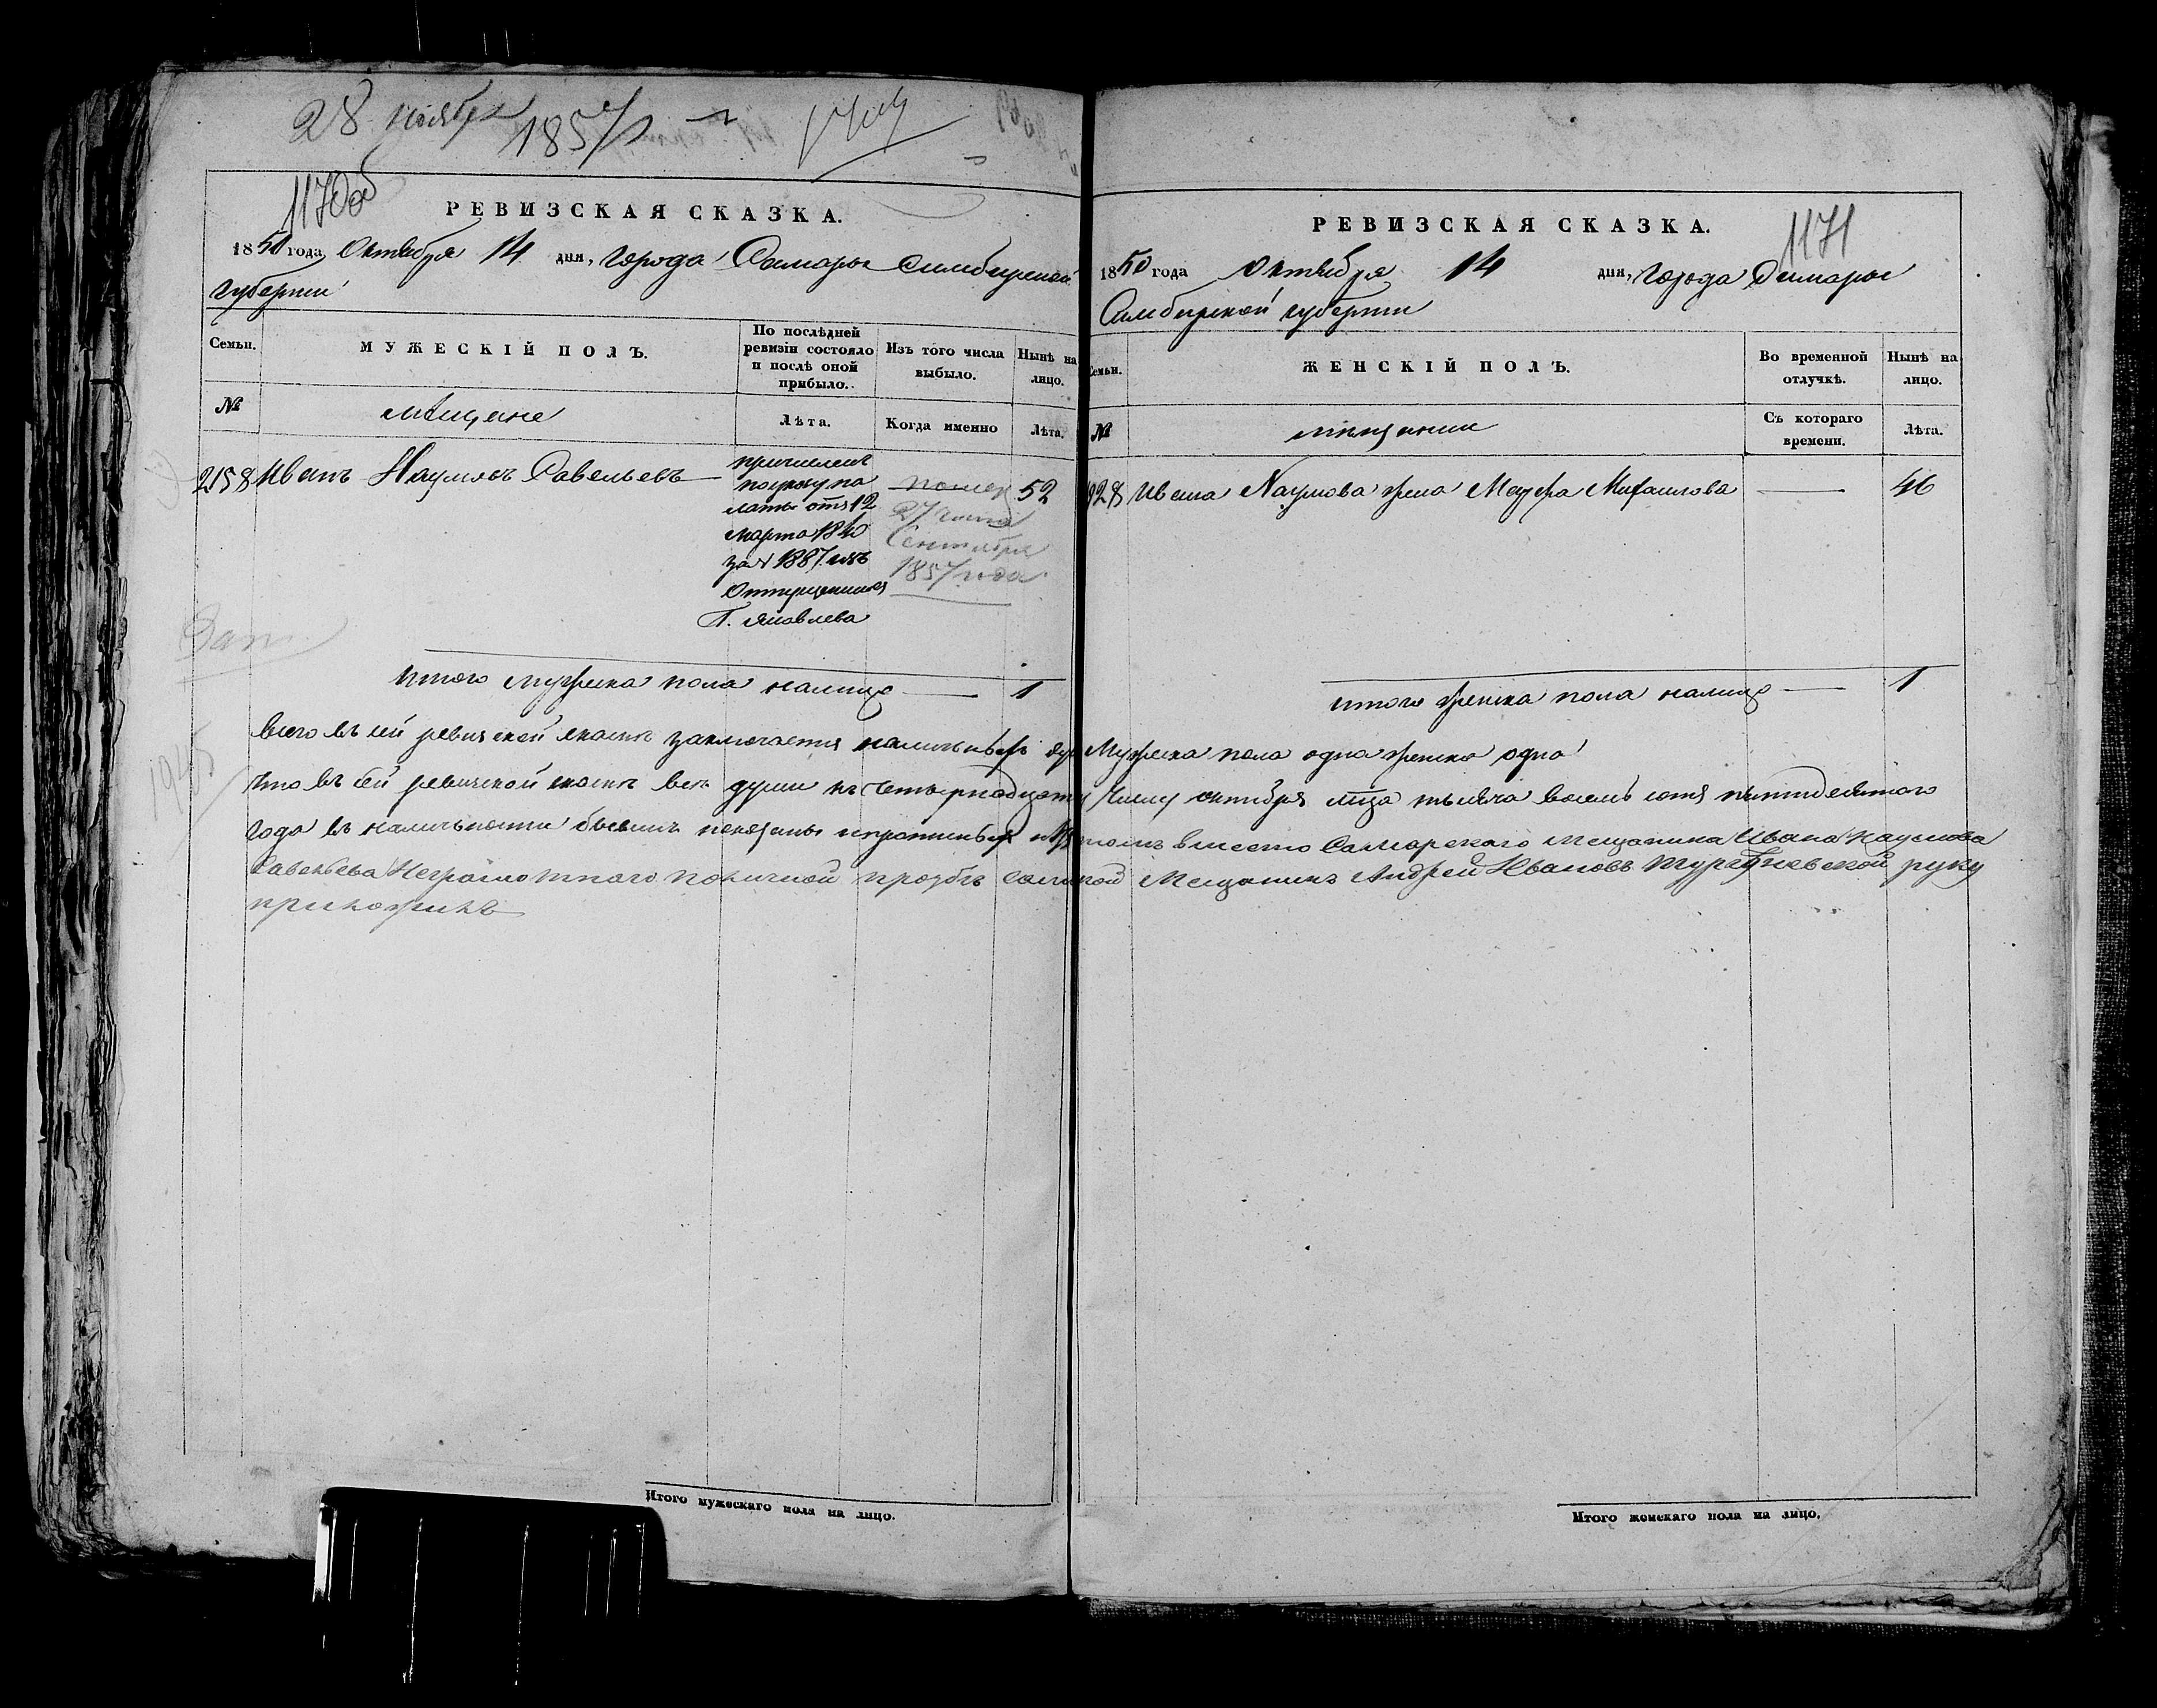 28 ноября
1857
1170об
РЕВИЗСКАЯ СКАЗКА.
1850 года Октября 14 дня, города Самары Симбирской
губернии
Семьи.
МУЖЕСКІЙ ПОЛЪ.
По послѣдней ревизіи состояло и послѣ оной прибыло.
Изъ того числа выбыло.
Нынѣ на лицо.
№
мѣщане
Лѣта.
Когда именно
Лѣта.
2158 Иванъ Наумовъ Савельевъ
причисленъ
по указу па
латы отъ 12
марта 1840
за № 1887 изъ
Отпущенника
Г. Яковлева
27
Сентября
1857 года
52
итого мужеска пола налицо 1
1171
РЕВИЗСКАЯ СКАЗКА.
1850 года Октября 14 дня, города Самары
Симбирской губернии
Семьи.
ЖЕНСКІЙ ПОЛЪ.
Во временной отлучкѣ.
Нынѣ на лицо.
№
мещанки
Съ котораго времени.
Лѣта.
Ивана Наумова жена Михайлова 46
итого женска пола налицо 1
всего въ сей ревизской сказкѣ заключается наличныхъ душ Мужеска пола одна женска одна
Что въ сей ревизской сказкѣ всѣ души къ четырнадцатому Числу октября мца тысяча восемь сотъ пятидесятого
года въ наличности бывшия показаны и прописных нѣт въ томъ вместо Самарского Мещанина Ивана Наумова
Савельева Неграмотного поличной прозбе самарской Мещанинъ Андрей Ивановъ руку
приложилъ
Итого мужескаго пола на лицо.
Итого женскаго пола на лицо.